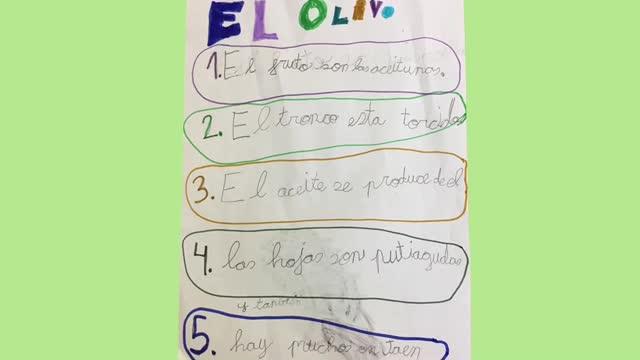 EL OLIVO.
1. El fruto son las aceitunas.
2. El tronco esta torcido
3. El aceite se produce de el
4. las hojas son putiagudas
y también
5. hay muchos en Jaen